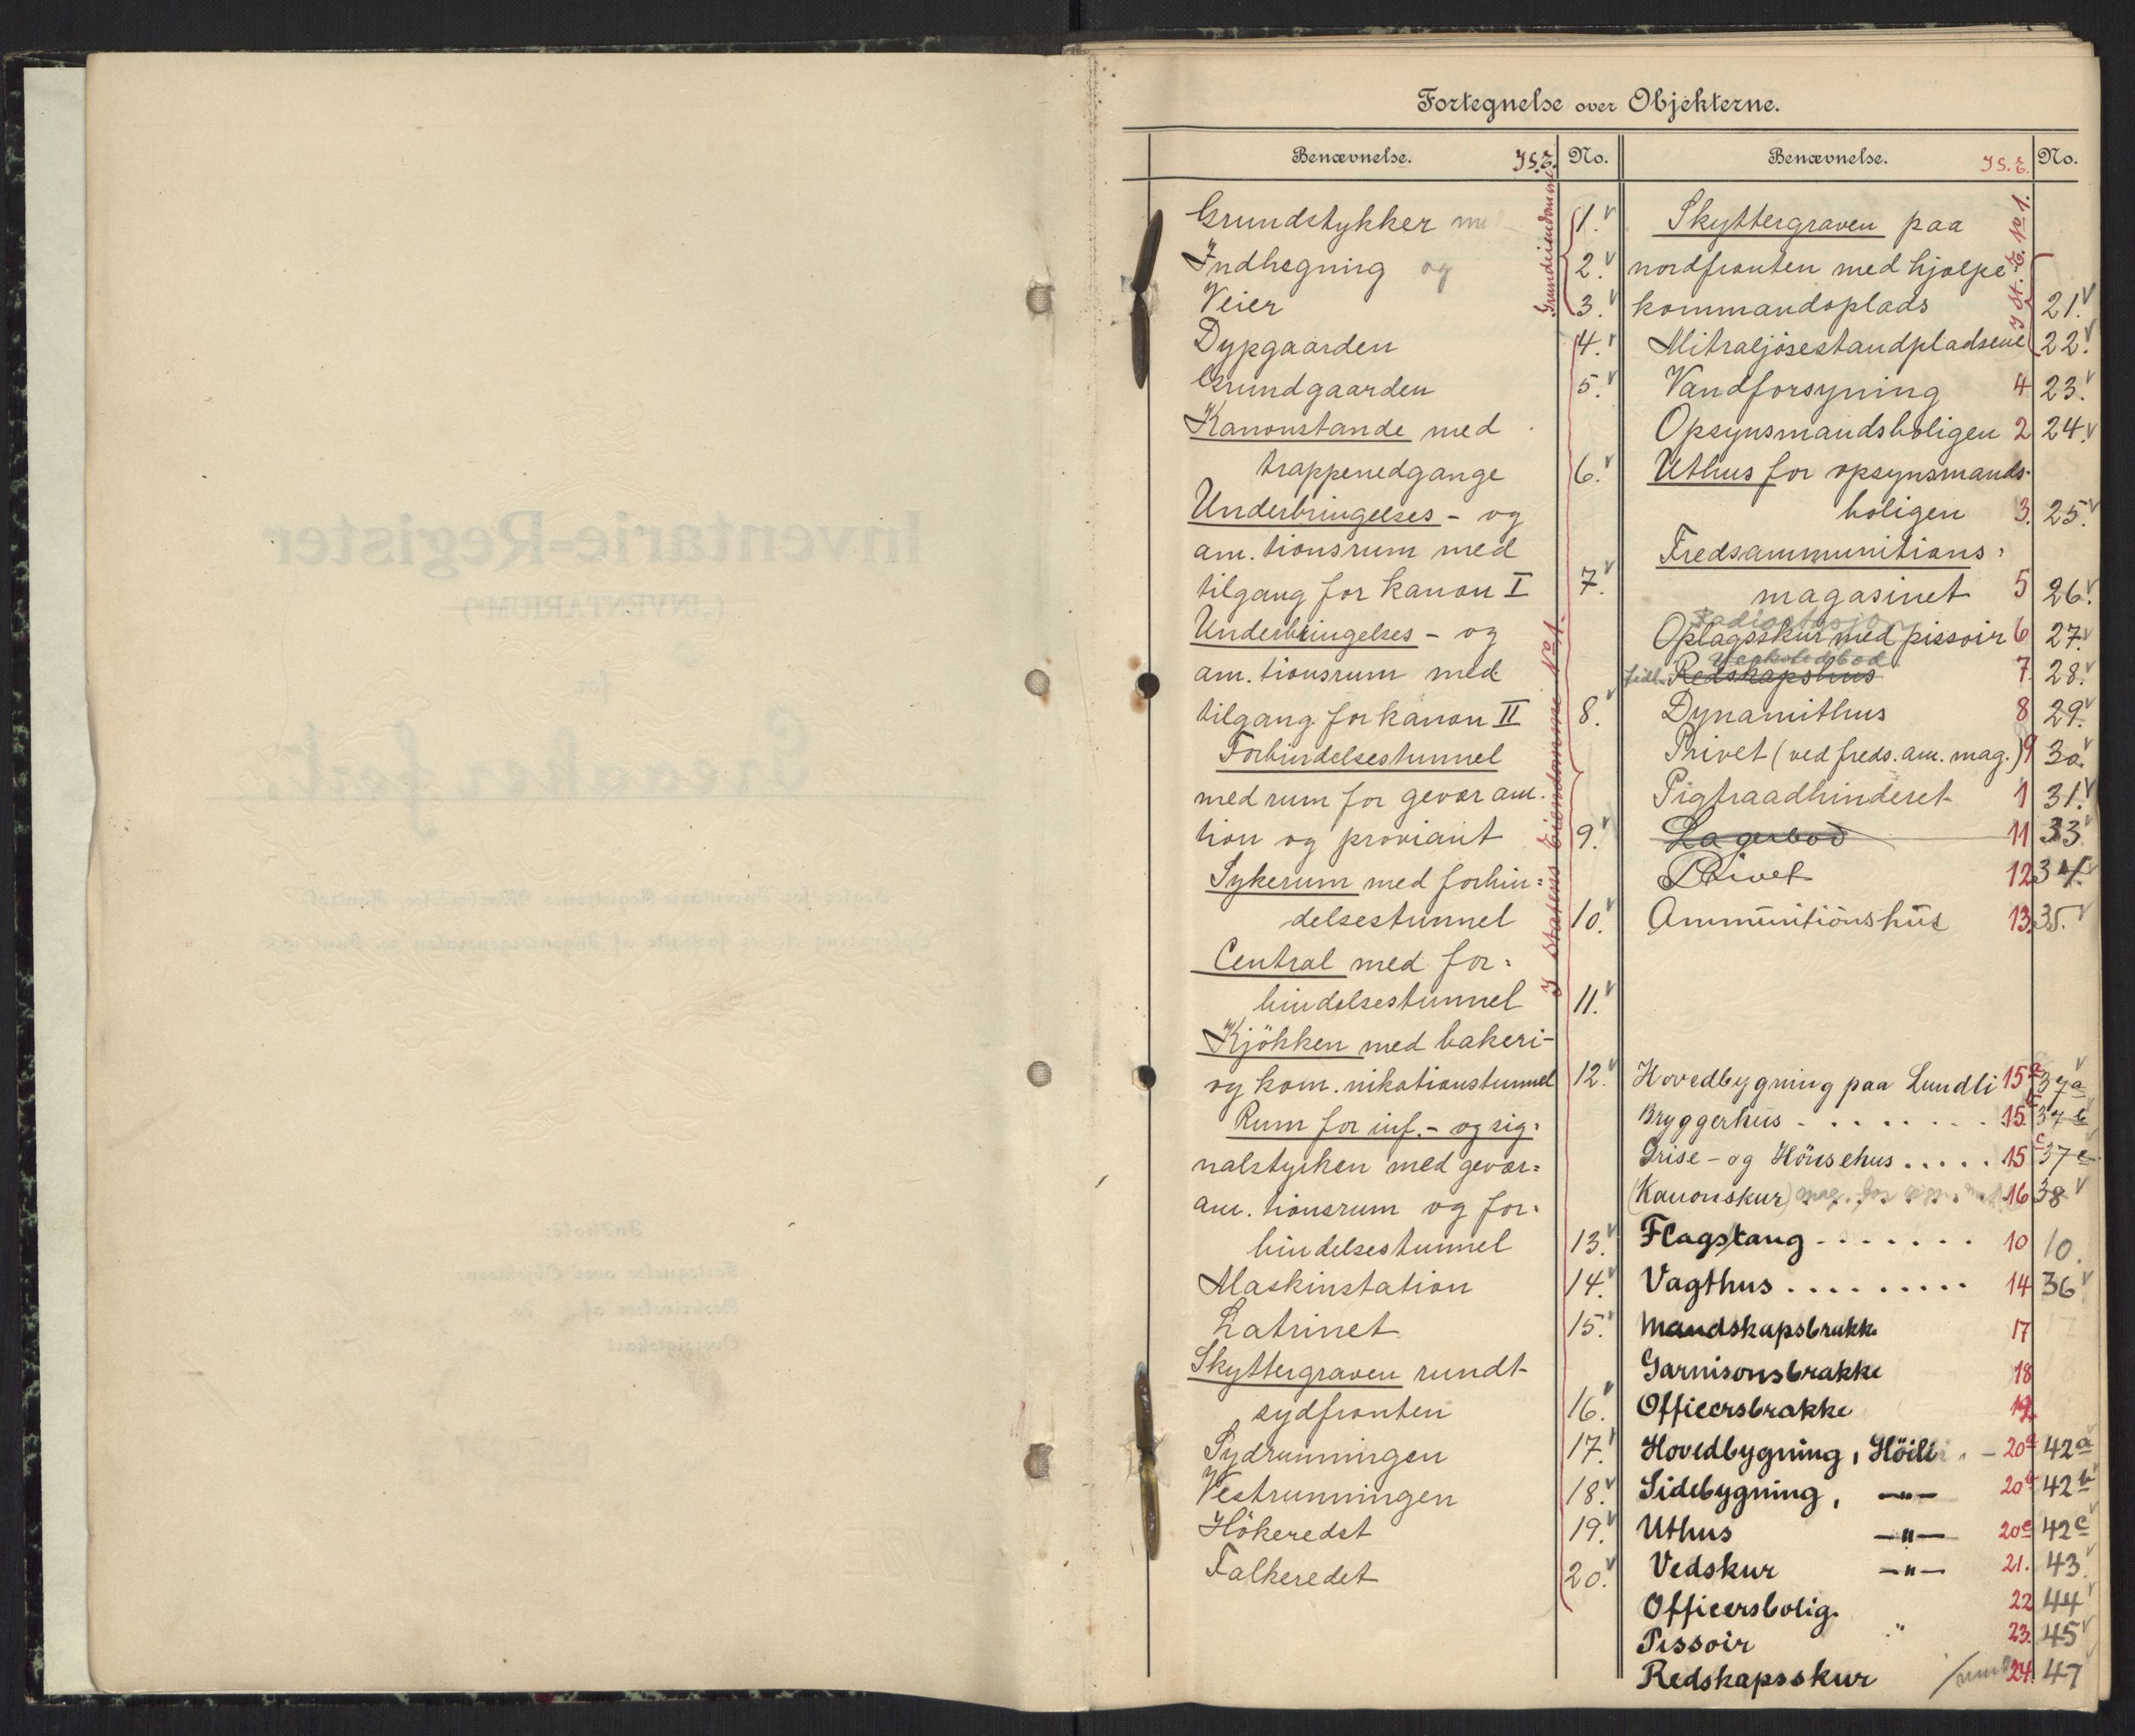 Fortegnelse over Objekterne.
Benævnelse. No.
Grundstykker 1.
Indhegning og 2.
Veier 3.
Dypgaarden 4.
Grundgaarden 5.
Kanonstande med
trappenedgange 6.
Underbringelses- og
am.tionsrum med
tilgang for kanon I 7.
Underbringelses- og
am.tionsrum med
tilgang for kanon II 8.
Forbindelsestunnel
med rum for gevær am.
tion og proviant 9.
Sykerum med forbin=
delsestunnel 10.
Central med for=
bindelsestunnel 11.
Kjökken med bakeri-
og kom.nikationstunnel 12.
Rum for inf.- og sig=
nalstyrken med gevær=
am.tionsrum og for=
bindelsestunnel 13.
Maskinstation 14.
Latrinet 15.
Skyttergraven rundt
sydfronten 16.
Sydrunningen 17.
Vestrunningen 18.
Hökeredet 19.
Falkeredet 20.
I Statens Eiendomme No 1.
Benævnelse. No.
Skyttergraven paa
nordfronten med hjælpe-
kommandoplads 21.
Mitraljösestandpladsene 22.
Vandforsyning 4 23.
Opsynsmandsboligen 2 24.
Uthus for opsynsmands-
boligen 3. 25.
Fredsammunitions=
magasinet 5 26.
Radiostasjon
Oplagsskur med pissoir 6 27.
Verkstedbod
Redskapshus 7. 28.
Dynamithus 8 29.
Privet (ved freds. am. mag.) 9 30.
Pigtraadhinderet 1 31.
Lagerbod 11 33.
Privet 12 34.
Ammunitionshus 13. 35.
Hovedbygning paa Lundli 15a 37a
Bryggerhus . . . . . . . . 15b 37b
Grise- og Hönsehus . . . . . 15c 37c
(Kanonskur) 16 38
Flagstang . . . . . . . 10 10.
Vagthus . . . . . . . . . 14 36
Mandskapsbrakke 17
Garnisonsbrakke 18
Officersbrakke 19
Hovedbygning, Höili 20a 42a
Sidebygning, —"— 20b 42b
Uthus —"— 20c 42c
Vedskur —"— 21. 43.
Officersbolig. 22 44
Pissoir " 23. 45
Redskapsskur 24. 47